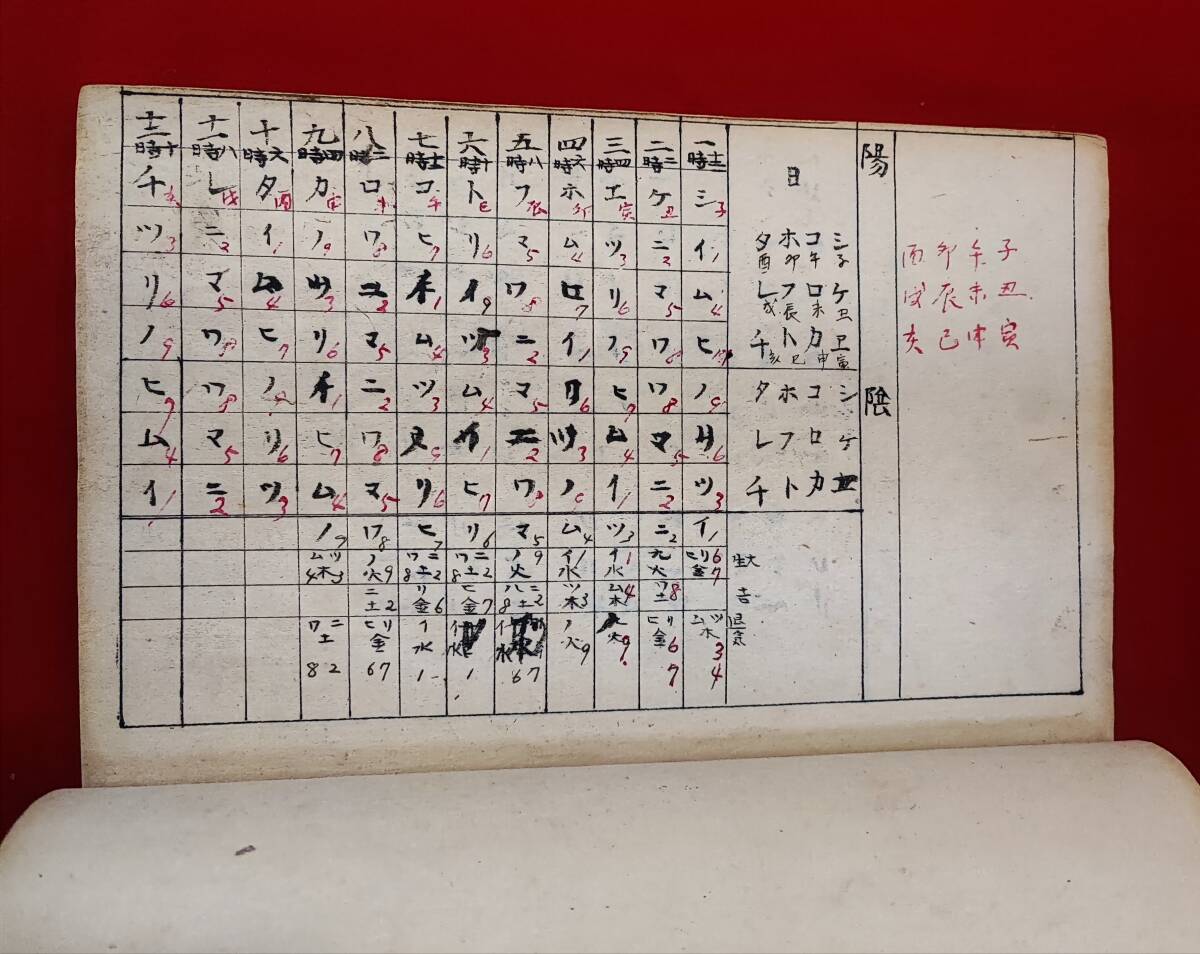 子 丑 寅
午 未 申
卯 辰 巳
酉 戌 亥
陽 陰
日
シ子 ケ丑 ヱ寅
コ午 ロ未 カ申
ホ卯 フ辰 ト巳
タ酉 レ戌 チ亥
シ ケ ヱ
コ ロ カ
ホ フ ト
タ レ チ
大生
吉
退気
一十二時 シ子 イ1 ム4 ヒ7 ノ9 リ6 ツ3 イ1 ヒリ金67 ムツ木34
二二時 ケ丑 ニ2 マ5 ワ8 ワ8 マ5 ニ2 ニ2 九火 ワ土8 ヒリ金67
三四時 エ寅 ツ3 リ6 ノ9 ヒ7 ム4 イ1 ツ3 イ水1 ム木4 火9
四六時 ホ卯 ム4 ヒ7 イ1 リ6 ツ3 ノ9 ム4 イ水1 ツ木3 ノ火9
五八時 フ辰 マ5 ワ8 ニ2 マ5 ニ2 ワ8 マ5 ノ火9 ハニ土82 水67
六十時 ト巳 リ6 イ9 ツ3 ム4 イ1 ヒ7 リ6 ワニ土82 ヒ金7 水1
七十二時 コ午 ヒ7 イ1 ム4 ツ3 9 リ6 ヒ7 ワニ土82 リ金6 イ水1
八二時 ロ未 ワ8 ニ2 マ5 ニ2 ワ8 マ5 ワ8 ノ火9 ニ土2 ヒリ金67
九四時 カ申 ノ9 ツ3 リ6 イ1 ヒ7 ム4 ノ9 ムツ木43 ワニ土82
十六時 タ酉 イ1 ム4 ヒ7 ノ9 リ6 ツ3
十一八時 レ戌 ニ2 マ5 ワ8 ワ8 マ5 ニ2
十二十時 チ亥 ツ3 リ6 ノ9 ヒ7 ム4 イ1